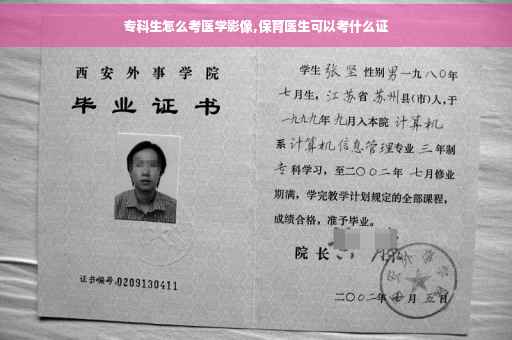 专科生怎么考医学影像,保育医生可以考什么证
西安外事学院
毕业证书
证书编号:0209130411
学生张坚性别男一九八〇年
七月生，江苏省苏州县(市)人,于
一九九九年九月入本院计算机
系计算机信息管理专业三年制
专科学习，至二〇〇二年七月修业
期满，学完教学计划规定的全部课程，
成绩合格，准予毕业。
院长
二〇〇二年 月五日